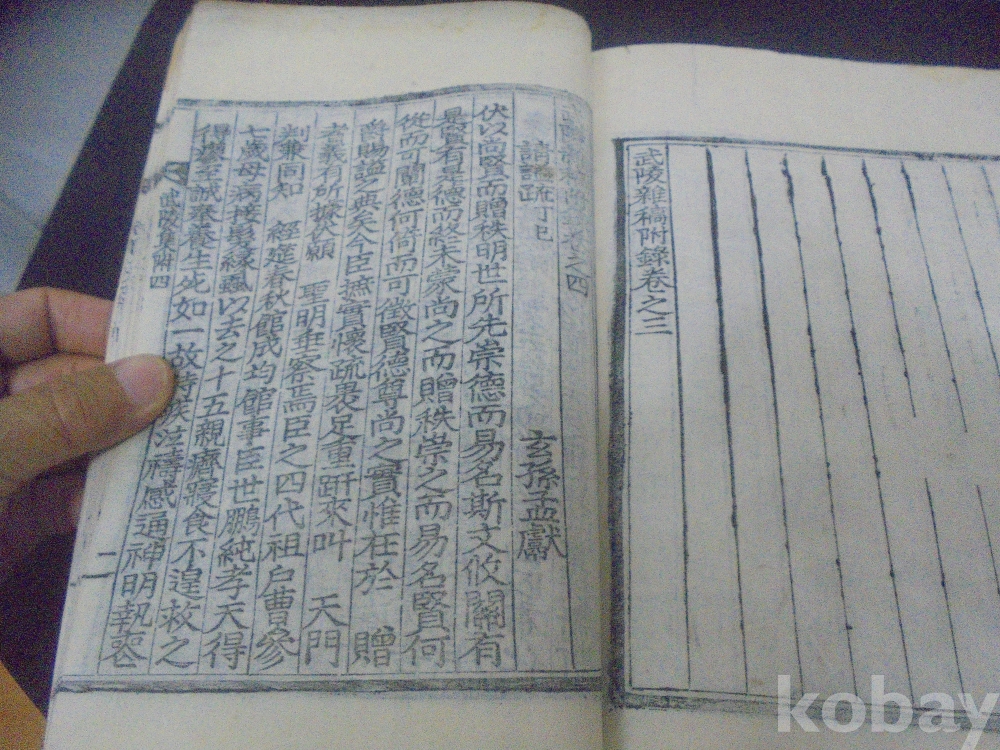 武陵雜稿附錄卷之三
武陵雜稿附錄卷之四
請謚疏丁巳
玄孫孟獻
伏以尚賢而贈秩明世所先崇德而易名斯文攸關有
是賢有是德而終未蒙尚之而贈秩崇之而易名賢何
從而可聞德何倚而可徵賢德尊尚之實惟在於 贈
爵賜謚之典矣今臣摭實懷疏裹足重趼來叫 天門
者義有所據伏願 聖明垂察焉臣之四代祖戶曹參
判兼同知 經筵春秋館成均館事臣世鵬純孝天得
七歲母病接髮緣蝨以去之十五親癠寢食不遑救之
得 至誠奉養生死如一故 泣禱感通神明執喪
武陵集附四
二
kobay